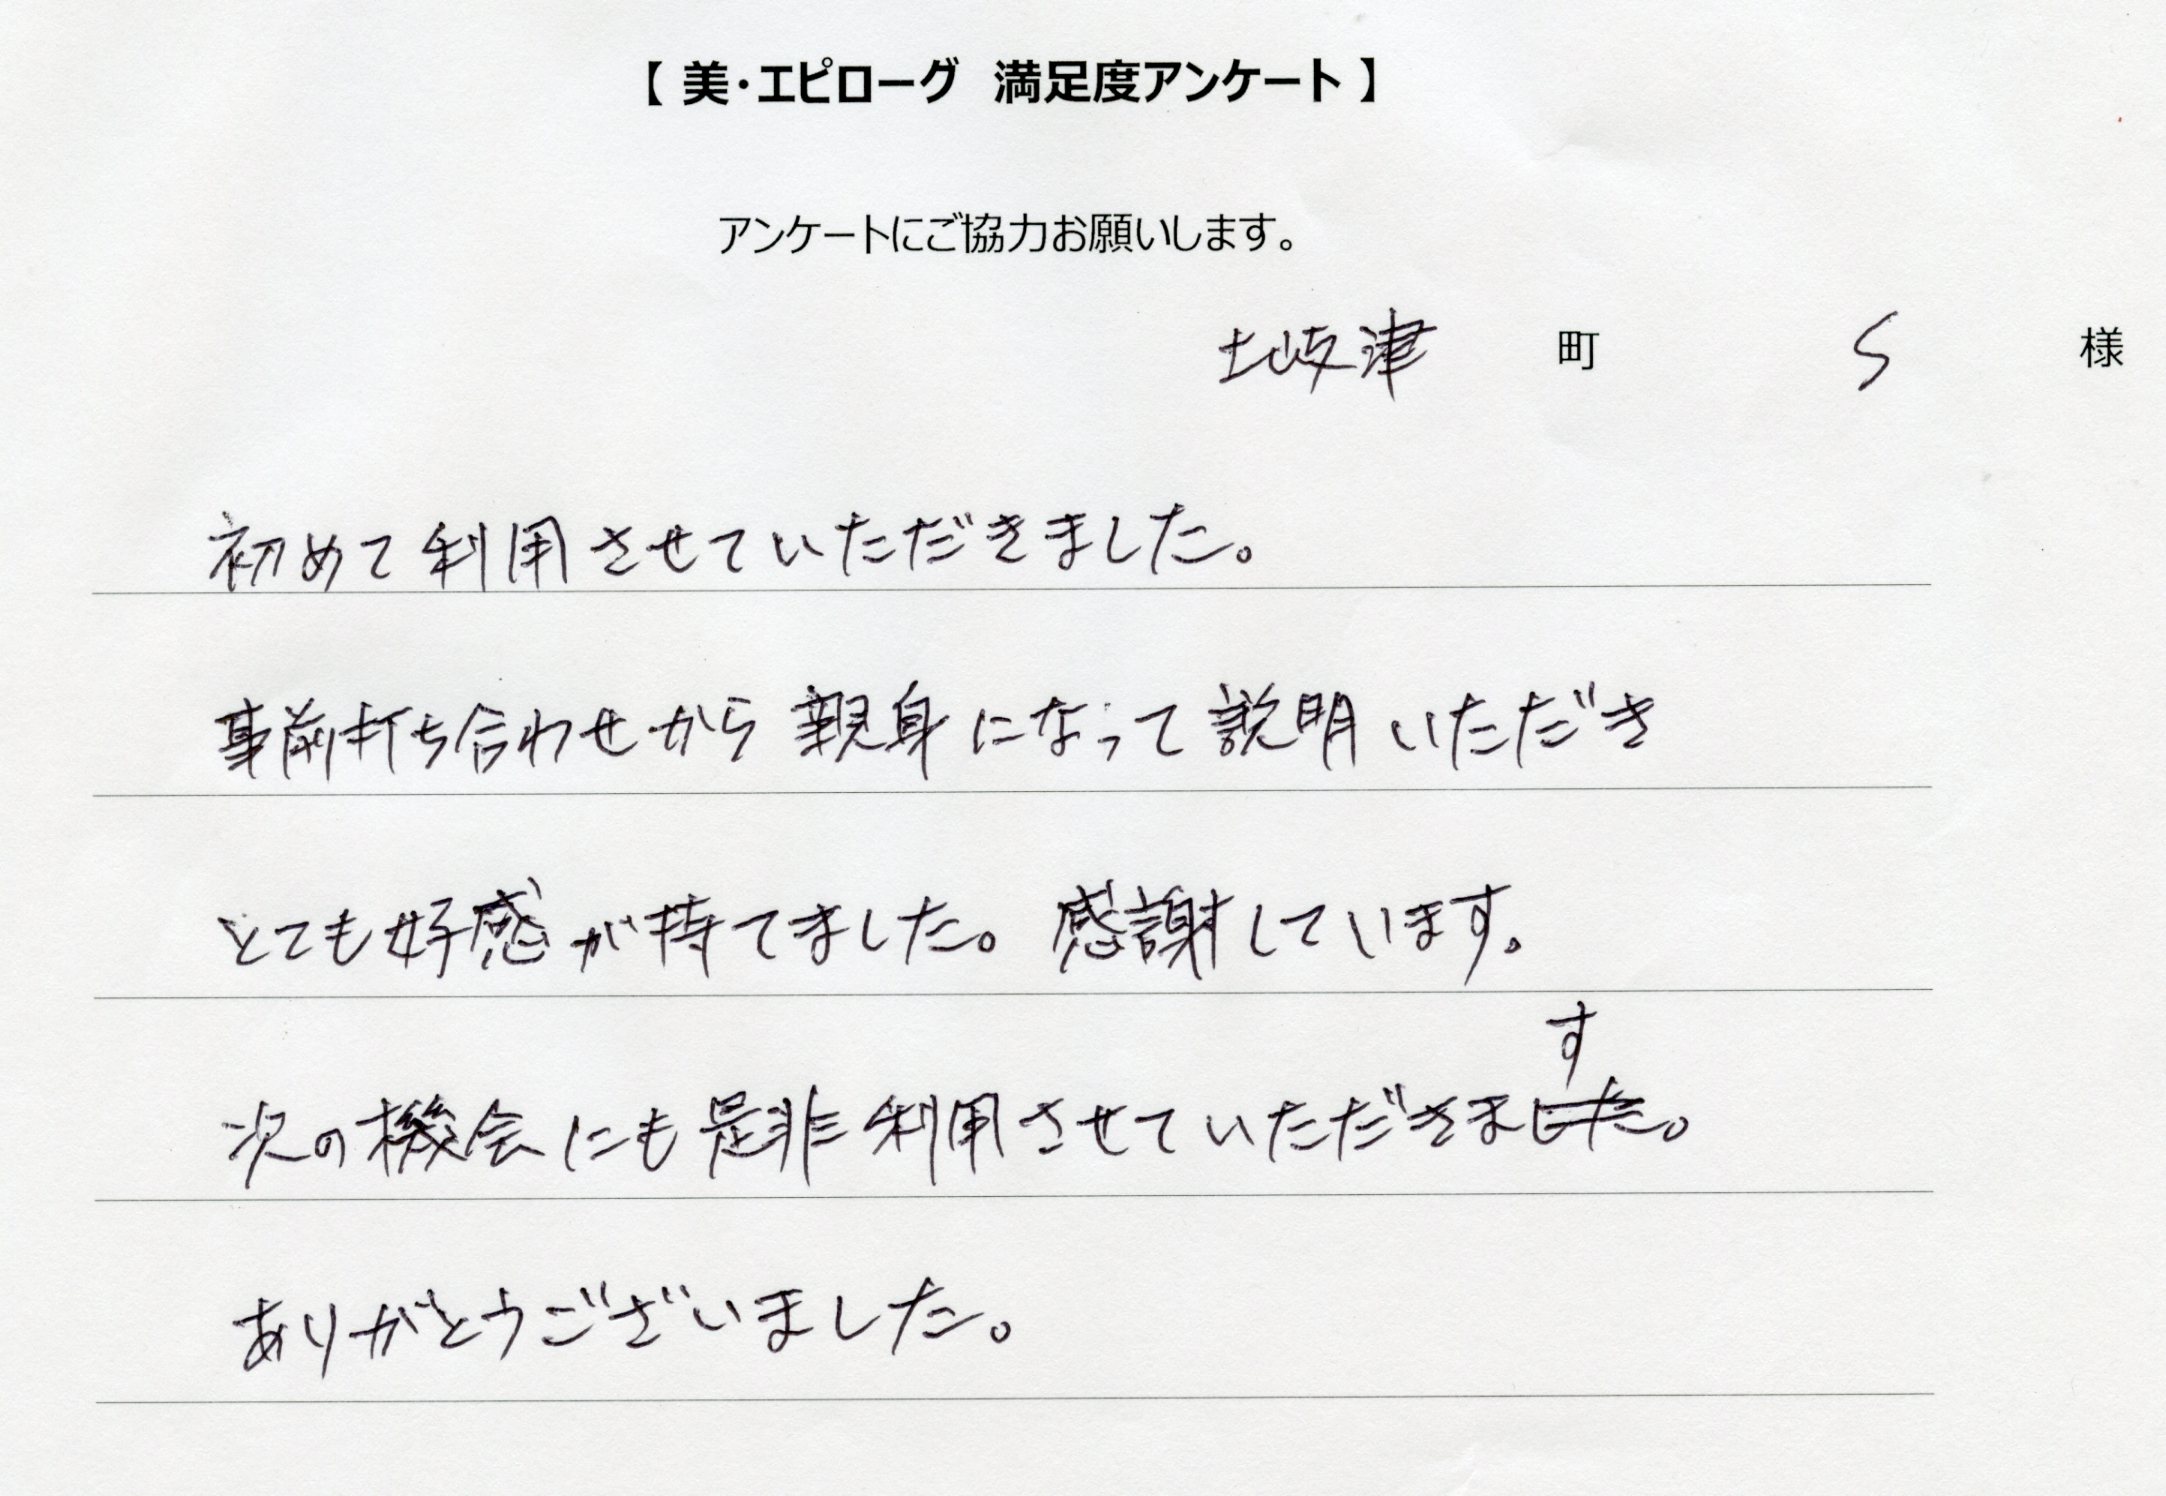 【 美・エピローグ 満足度アンケート 】
アンケートにご協力お願いします。
土岐津 町 S 様
初めて利用させていただきました。
事前打ち合わせから親身になって説明いただき
とても好感が持てました。感謝しています。
す
次の機会にも是非利用させていただきました。
ありがとうございました。